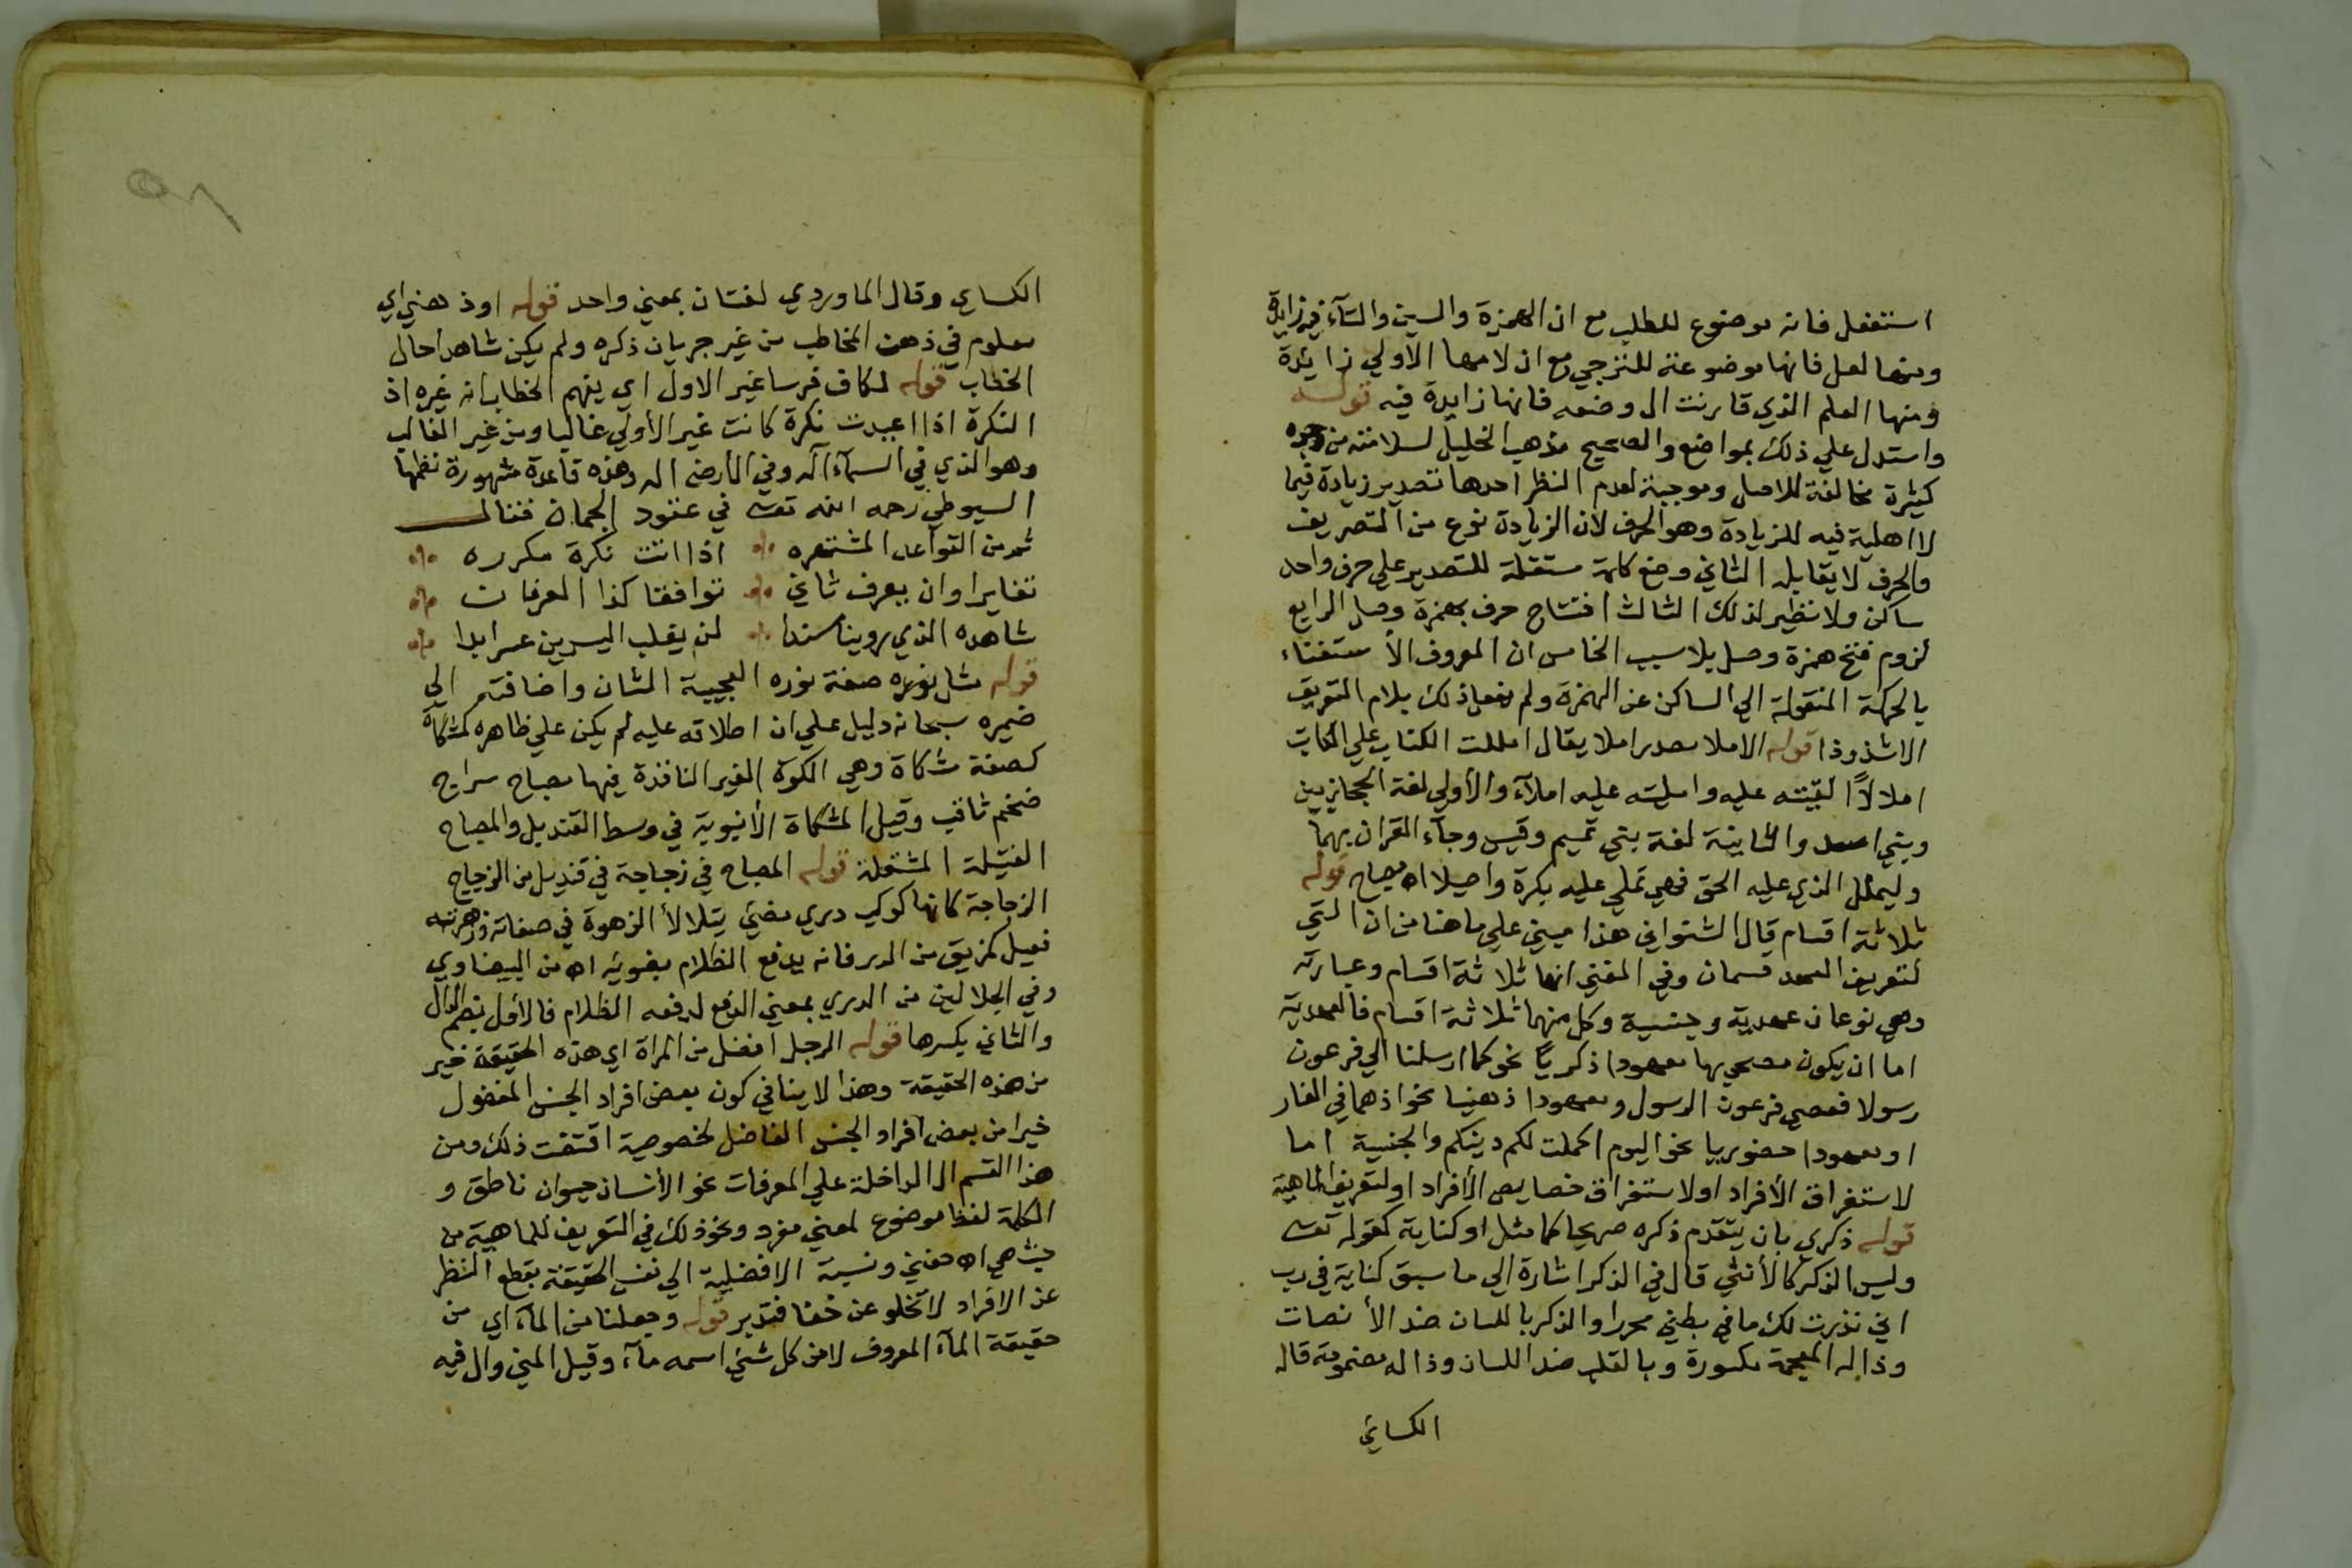 استفعل فانه موضوع للطلب مع ان الهمزة والسين والتآء فيه زايدة
ومنها لعل فانها موضوعة للترجي مع ان لامها الاولي زايدة
ومنها العلم الذي قارنت ال وضعه فانها زايدة فيه قولـــه
واستدل علي ذلك بمواضع والصحيح مذهب الخليل لسلامته من وجوه
كثيرة مخالفة للاصل وموجبة لعدم النظر احدها تصدير زيادة فيما
لا اهلية فيه للزيادة وهو الحرف لان الزيادة نوع من التصريف
والحرف لا يقابله الثاني وضع كلمة مستقلة للتصدير علي حرف واحد
ساكن ولا نظير لذلك الثالث افتتاح حرف بهمزة وصل الرابع
لزوم فتح همزة وصل بلا سبب الخامس ان المعروف الاستغناء
بالحركة المنقولة الي الساكن عن الهمزة ولم يفعل ذلك بلام التعريف
الا شذوذا قوله الاملا مصدر املا يقال امللت الكتاب علي الكاتب
املالاً القيته عليه وامليته عليه املآء والأولي لغة الحجازيين
وبني اسد والثانية لغة بني تميم وقيس وجآء القران بهما
وليملل الذي عليه الحق فهي تملي عليه بكرة واصيلا اه مصباح قوله
ثلاثة اقسام قال الشنواني هذا مبني علي ما هنا من ان التي
لتعريف العهد قسمان وفي المغني انها ثلاثة اقسام وعبارته
وهي نوعان عهدية وجنسية وكل منهما ثلاثة اقسام فالعهدية
اما ان يكون مصحوبها معهودا ذكريا نحو كما ارسلنا الي فرعون
رسولا فعصي فرعون الرسول ومعهودا ذهنيا نحو اذ هما في الغار
او معهودا حضوريا نحو اليوم اكملت لكم دينكم والجنسية اما
لاستغراق الأفراد او لاستغراق خصايص الأفراد او لتعريف الماهية
قوله ذكري بان يتقدم ذكره صريحا كما مثل او كناية كقوله تعـ
وليس الذكر كالأنثي قال في الذكر اشارة الي ما سبق كناية في رب
اني نذرت لك ما في بطني محررا والذكر باللسان ضد الأنصات
وذاله المعجمة مكسورة وبالقلب ضد اللسان وذاله مضمومة قاله
الكسائي
الكساي وقال الماوردي لغتان بمعني واحد قوله او ذهني اي
معلوم في ذهن المخاطب من غير جريان ذكره ولم يكن شاهدا حال
الخطاب قوله لكان فرسا غير الاول اي يفهم الخطاب انه غيره اذ
النكرة اذا اعيدت نكرة كانت غير الأولي غالبا ومن غير الغالب
وهو الذي في السمآء اله وفي الأرض اله وهذه قاعدة مشهورة نظمها
السيوطي رحمه الله تعـ في عقود الجمان فقالـــ
ثم من القواعد المشتهره اذا اتت نكرة مكرره
تغايرا وان يعرف ثاني توافقا كذا المعرفان
شاهده الذي روينا مسندا لن يغلب اليسرين عسر ابدا
قوله مثل نوره صفة نوره العجيبة الشان واضافته الي
ضميره سبحانه دليل علي ان اطلاقه عليه لم يكن علي ظاهره كمشكاة
كصفة مشكاة وهي الكوة الغير النافذة فيها مصباح سراج
ضخم ثاقب وقيل المشكاة الأنبوبة في وسط القنديل والمصباح
الفتيلة المشتعلة قوله المصباح في زجاجة في قنديل من الزجاج
الزجاجة كانها كوكب دري مضئ يتلالأ الزهرة في صفاته وزهرته
فعيل كمزيق من الدر فانه يدفع الظلام بضوئه اه من البيضاوي
وفي الجلالين من الدري بمعني الدفع لدفعه الظلام فالأول بضم الدال
والثاني بكسرها قوله الرجل افضل من المراة اي هذه الحقيقة خير
من هذه الحقيقة وهذا لا ينافي كون بعض افراد الجنس المفضول
خيرا من بعض افراد الجنس الفاضل لخصوصية اقتضت ذلك ومن
هذا القسم ال الداخلة علي المعرفات نحو الأنسان حيوان ناطق و
الكلمة لفظ موضوع لمعني مفرد ونحو ذلك في التعريف للماهية من
حيث هي اه حفني ونسبة الافضلية الي نفس الحقيقة بقطع النظر
عن الافراد لا تخلو عن خفا فتدبر قوله وجعلنا من المآء اي من
حقيقة المآء المعروف لا من كل شئ اسمه مآء وقيل المني وال فيه